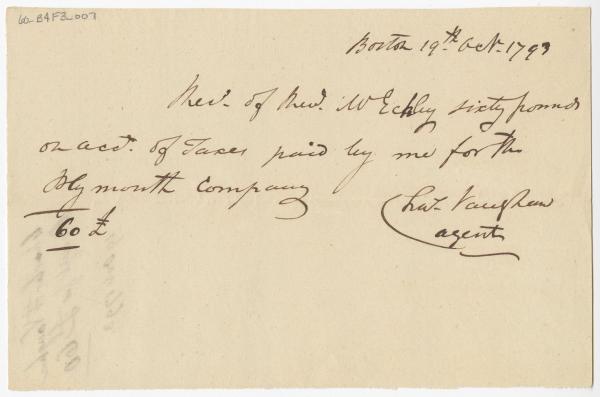 60-B4F3-007
Boston 19th. Octr. 1793
Recd. of Revd. Mr Eckley sixty pounds
on acct. of Taxes paid by me for the
Plymouth Company
Chas. Vaughan
60 £
agent